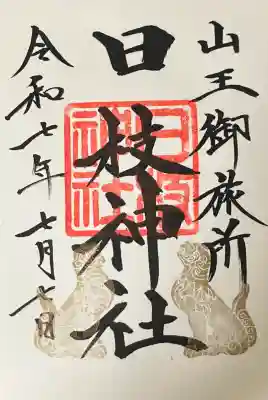 山王御旅所
日枝神社
日枝
神社
令和七年七月日